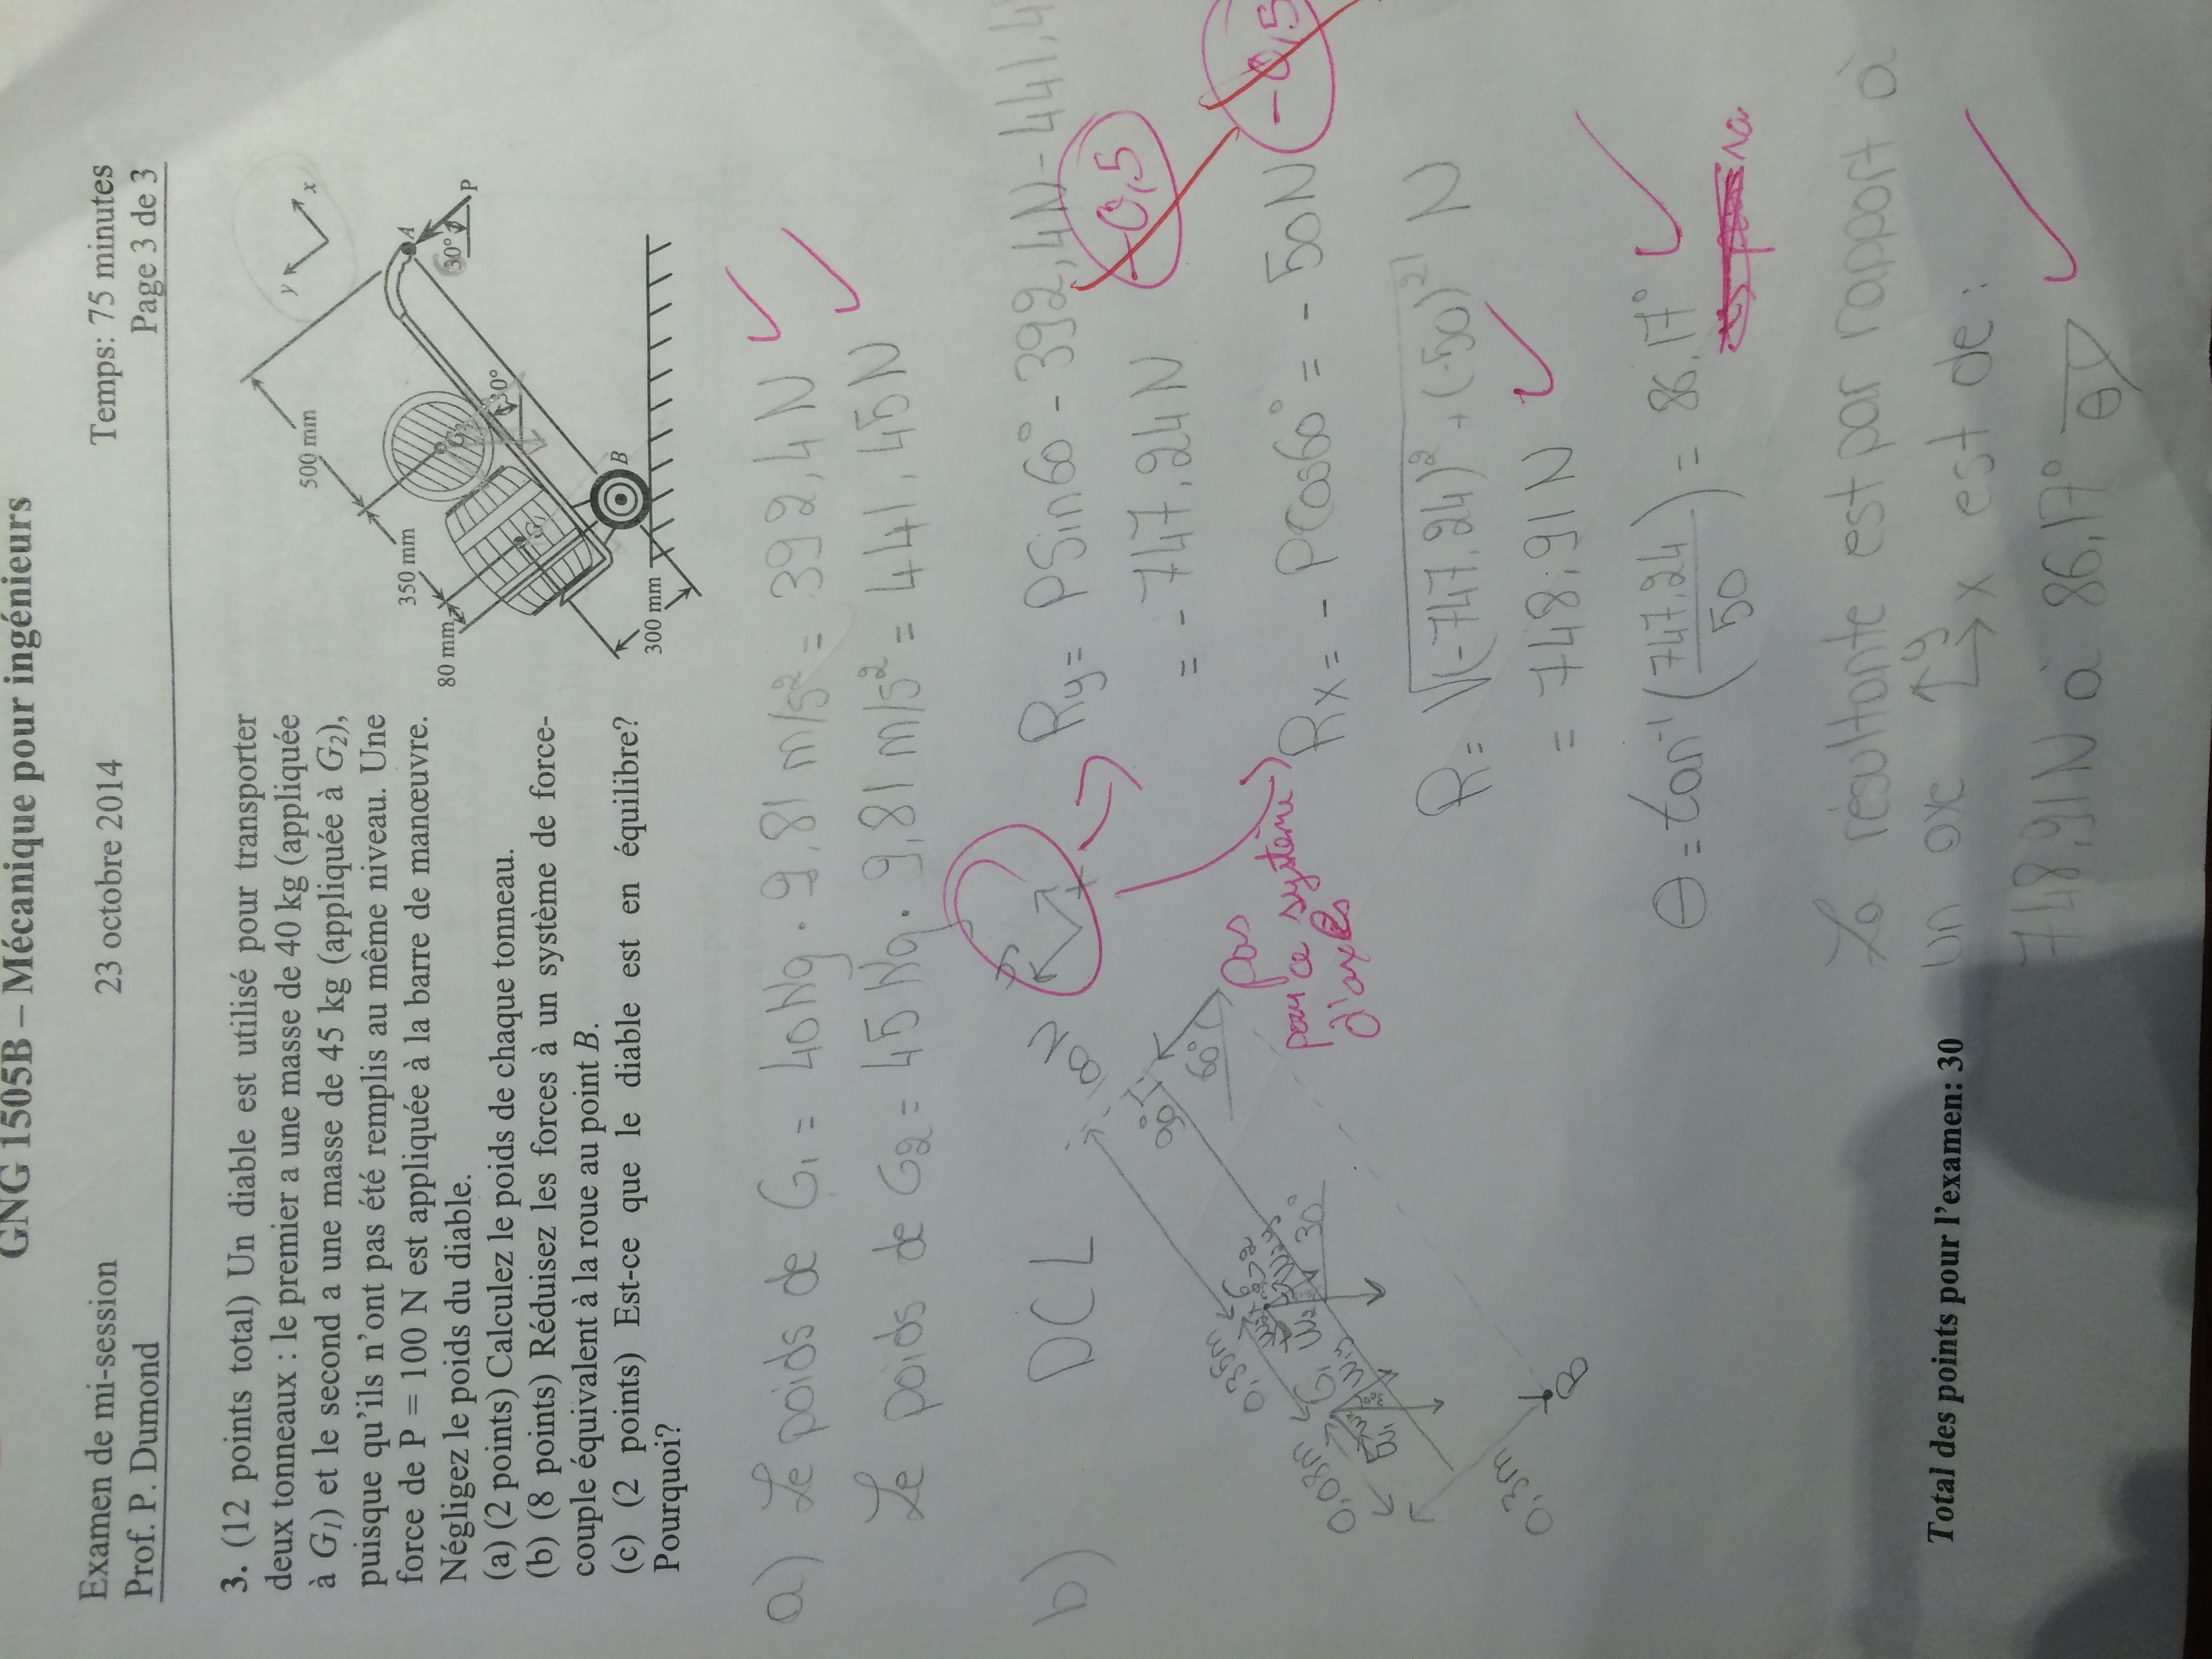 GNG 1505B – Mécanique pour ingénieurs
Examen de mi-session 23 octobre 2014 Temps: 75 minutes
Prof. P. Dumond Page 3 de 3
3. (12 points total) Un diable est utilisé pour transporter
deux tonneaux : le premier a une masse de 40 kg (appliquée
à G1) et le second a une masse de 45 kg (appliquée à G2),
puisque qu'ils n'ont pas été remplis au même niveau. Une
force de P = 100 N est appliquée à la barre de manœuvre.
Négligez le poids du diable.
(a) (2 points) Calculez le poids de chaque tonneau.
(b) (8 points) Réduisez les forces à un système de force-
couple équivalent à la roue au point B.
(c) (2 points) Est-ce que le diable est en équilibre?
Pourquoi?
y
x
500 mm
350 mm
80 mm
300 mm
A
30°
P
30°
G2
G1
B
a) Le poids de G1 = 40kg · 9,81 m/s² = 392,4 N
Le poids de G2 = 45 kg · 9,81 m/s² = 441,45 N
b) DCL
y
x
Ry = PSin60° - 392,4N - 441,4
= -747,24 N
-0,5
Rx = - PCos60° = -50N
-0,5
pas
pour ce système
d'axes
R = √(-747,24)² + (-50)² N
= 748,91 N
θ = tan⁻¹ (747,24/50) = 86,17°
La résultante est par rapport à
un axe y x est de :
748,91N à 86,17° θ
N
60°
90°
30°
0,35m
0,08m
0,3m
G2
G1
B
Total des points pour l'examen: 30